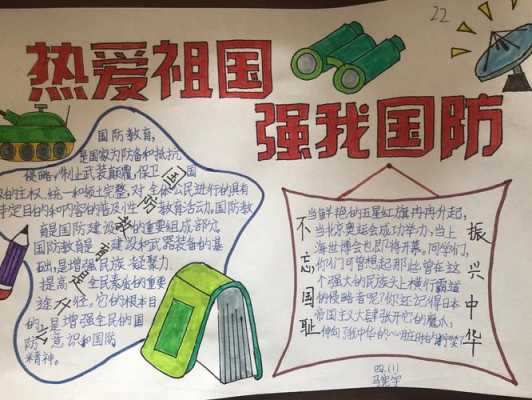 22
热爱祖国
强我国防
国防教育，
是国家为防备和抵抗
侵略，制止武装颠覆，保卫国
的主权、统一和领土完整，对全体公民进行的具有
特定目的和内容的普及性国防教育活动。国防教
育是国防建设的重要组成部分，
国防教育是建设和武器装备的基
础，是增强民族凝聚力、
提高全民素质的重要
途径。它的根本目
的，是增强全民的国
防意识和国防
精神。
不忘国耻
当鲜艳的五星红旗冉冉升起，
当北京奥运会成功举办，当上
海世博会也即将开幕，同学们，
你们可曾想起那些曾在这
个强大的民族头上横行霸道
的侵略者呢？你还记得日本
帝国主义大肆张开它的魔爪，
伸向我中华的心脏时的
振兴中华
四.(1)